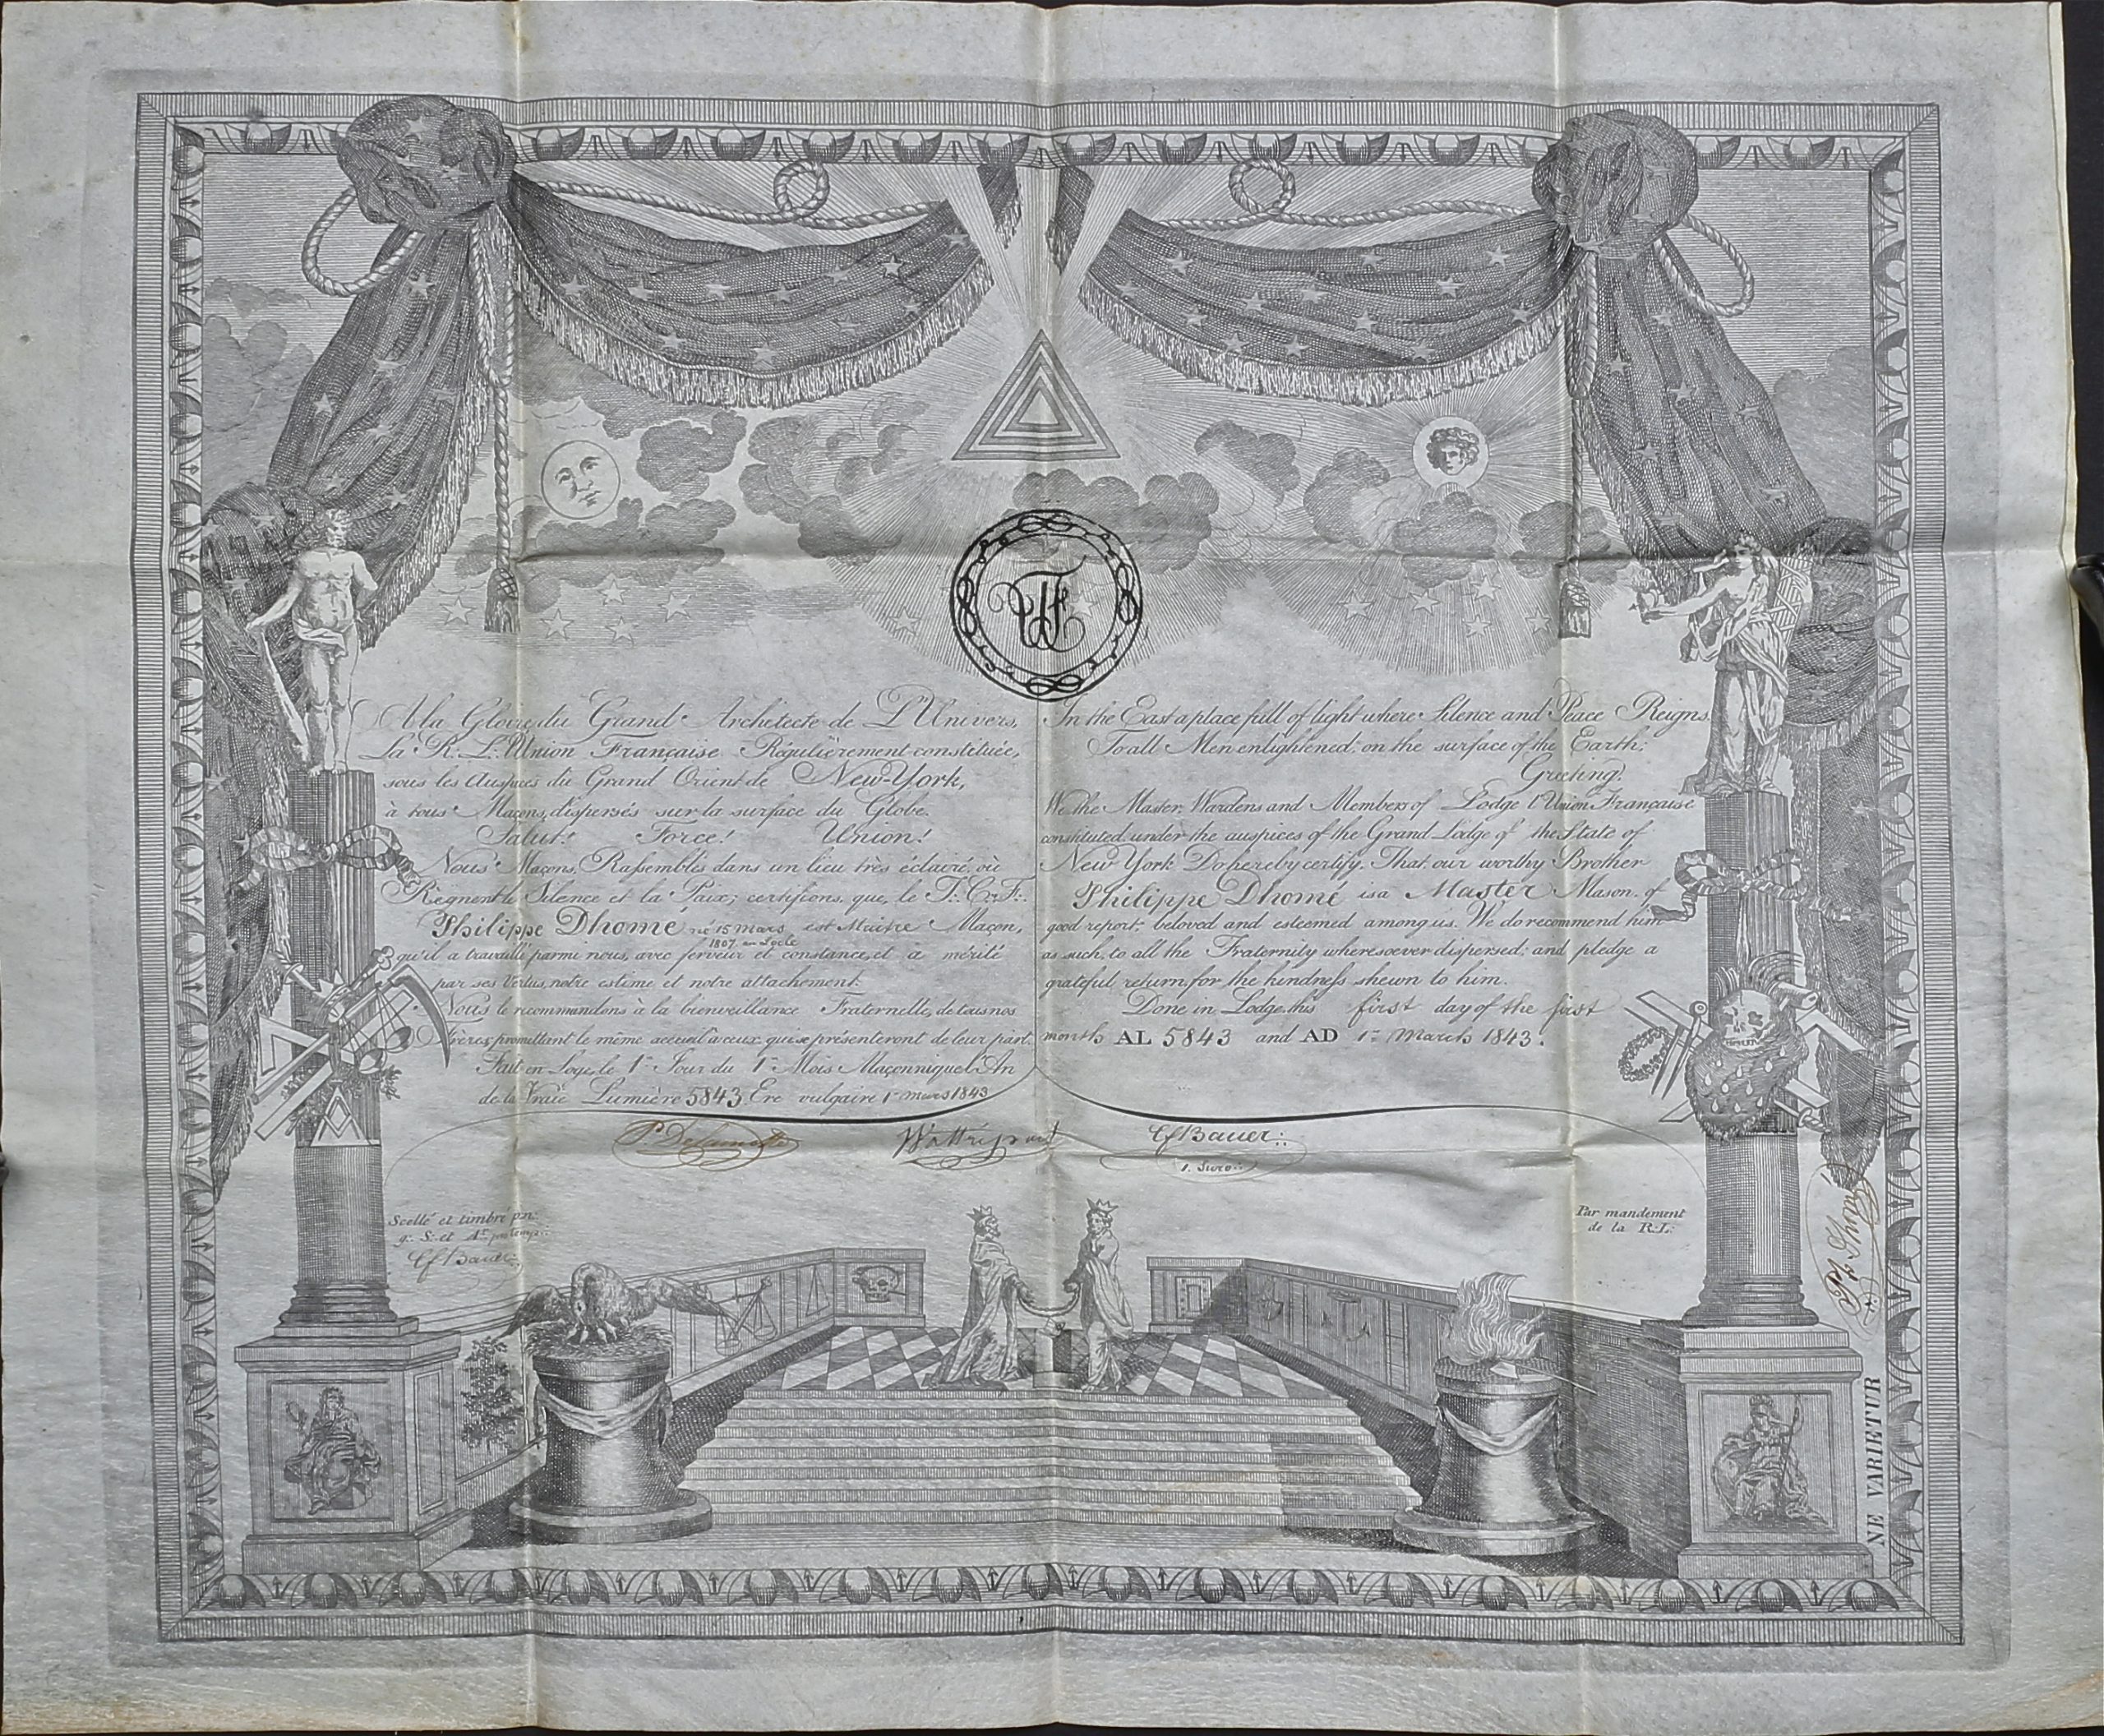 A la Gloire du Grand Architecte de L'Univers,
La R.·. L.·. Union Française Régulièrement constituée,
sous les Auspices du Grand Orient de New-York,
à tous Maçons, dispersés sur la surface du Globe.
Salut! Force! Union!
Nous Maçons, Rassemblés dans un lieu très éclairé, où
Règnent le Silence et la Paix; certifions, que, le T.·. C.·. F.·.
Philippe Dhomé né 15 mars est Maitre Maçon,
1807
qu'il a travaillé parmi nous, avec ferveur et constance, et a mérité
par ses Vertus, notre estime et notre attachement.
Nous le recommandons à la bienveillance Fraternelle, de tous nos
Frères, promettant le même accueil à ceux qui se présenteront de leur part.
Fait en Loge, le 1er Jour du 1er Mois Maçonnique L'An
de la Vraie Lumière 5843 Ere vulgaire 1er mars 1843
In the East a place full of light where Silence and Peace Reigns.
To all Men enlightened; on the surface of the Earth;
Greeting!
We the Master, Wardens and Members of Lodge l'Union Française
constituted under the auspices of the Grand Lodge of the State of
New York Do hereby certify, That our worthy Brother
Philippe Dhomé is a Master Mason, of
good report; beloved and esteemed among us. We do recommend him
as such, to all the Fraternity wheresoever dispersed; and pledge a
grateful return, for the kindness shewn to him.
Done in Lodge this first day of the first
month AL 5843 and AD 1st March 1843.
Cf Bauer
Scellé et timbré par
Cf Bauer
Par mandement
de la R.·. L.·.
Ph Dhomé
NE VARIETUR